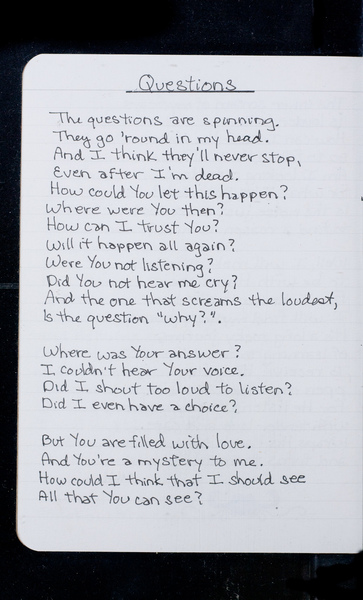 Questions
The questions are spinning.
They go 'round in my head.
And I think they'll never stop,
Even after I'm dead.
How could You let this happen?
Where were You then?
How can I trust You?
Will it happen all again?
Were You not listening?
Did You not hear me cry?
And the one that screams the loudest,
Is the question "why?".
Where was Your answer?
I couldn't hear Your voice.
Did I shout too loud to listen?
Did I even have a choice?
But You are filled with love.
And You're a mystery to me.
How could I think that I should see
All that You can see?